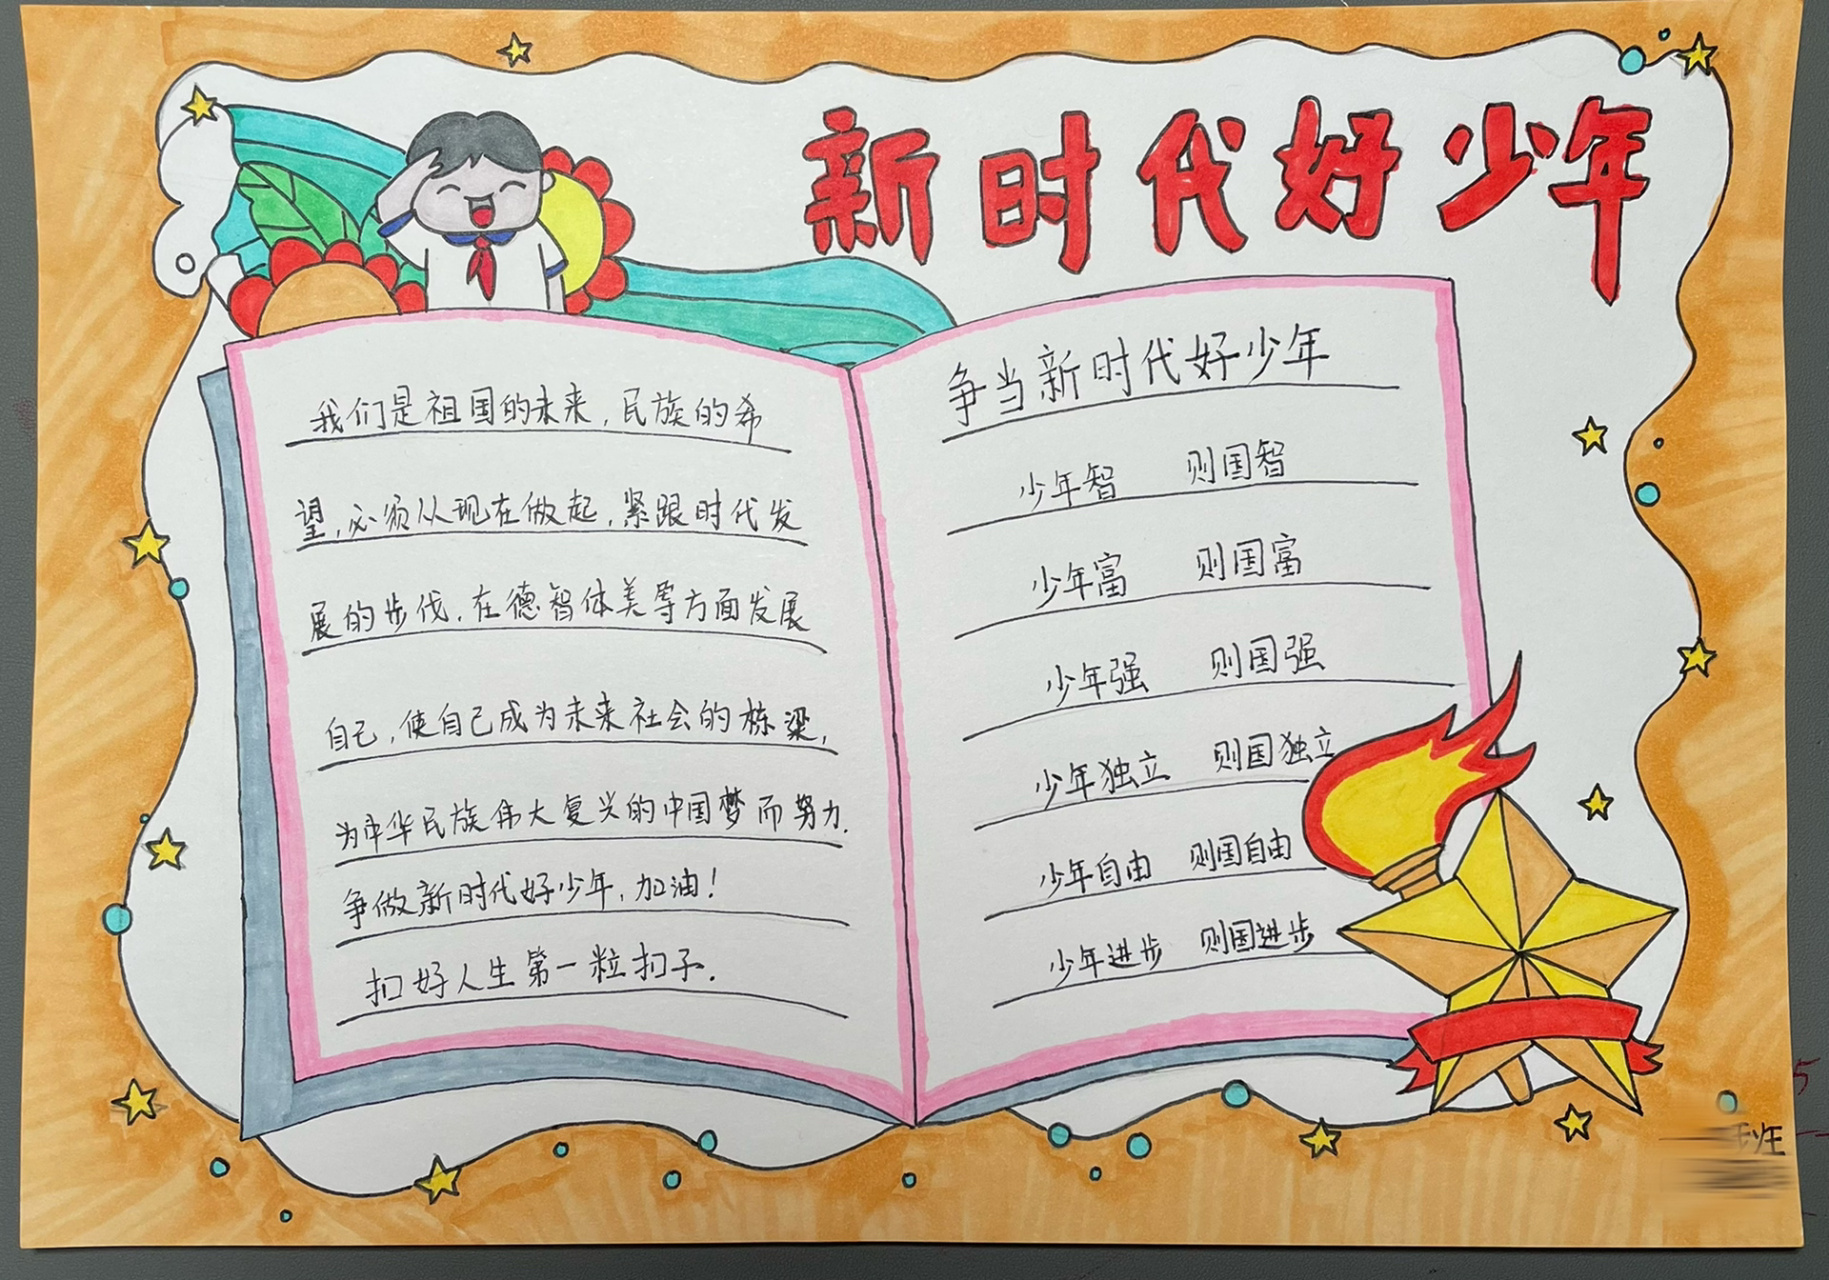 新时代好少年
我们是祖国的未来,民族的希
望,必须从现在做起,紧跟时代发
展的步伐.在德智体美等方面发展
自己,使自己成为未来社会的栋梁,
为中华民族伟大复兴的中国梦而努力.
争做新时代好少年,加油!
扣好人生第一粒扣子.
争当新时代好少年
少年智 则国智
少年富 则国富
少年强 则国强
少年独立 则国独立
少年自由 则国自由
少年进步 则国进步
班